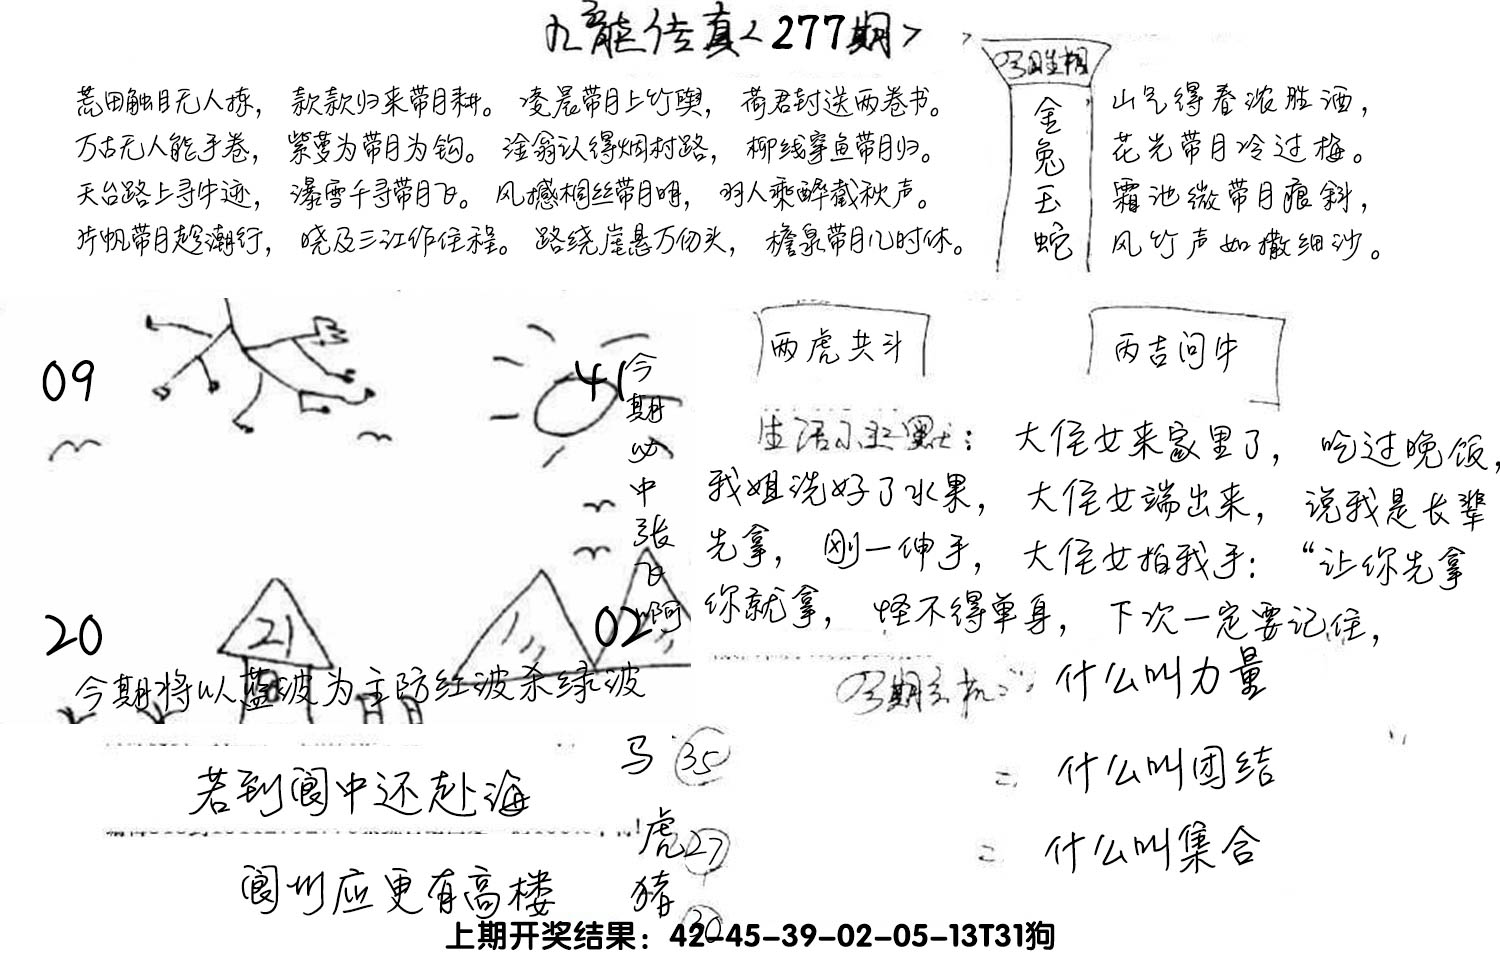 九龍传真<277期>
荒田触目无人拣，款款归来带月耕。凌晨带月上竹舆，荷君封送两卷书。
万古无人能手卷，紫萝为带月为钩。淦翁认得烟村路，柳线穿鱼带月归。
天台路上寻牛迹，瀑雪千寻带月飞。风撼相丝带月明，羽人乘醉截秋声。
片帆带月趁潮行，晓及三江作住程。路绕崖悬万仞头，檐泉带月几时休。
金兔玉蛇
山气得春浓胜酒，
花光带月冷过梅。
霜池微带月痕斜，
风竹声如撒细沙。
09
41
20
21
02
今期必中张飞啊
今期将以蓝波为主防红波杀绿波
两虎共斗
丙吉问牛
大侄女来家里了，吃过晚饭，
我姐洗好了水果，大侄女端出来，说我是长辈
先拿，刚一伸手，大侄女拍我手：“让你先拿
你就拿，怪不得单身，下次一定要记住，
什么叫力量
什么叫团结
什么叫集合
若到阆中还赴海
阆州应更有高楼
马 35
虎 27
猪 30
上期开奖结果：42-45-39-02-05-13T31狗